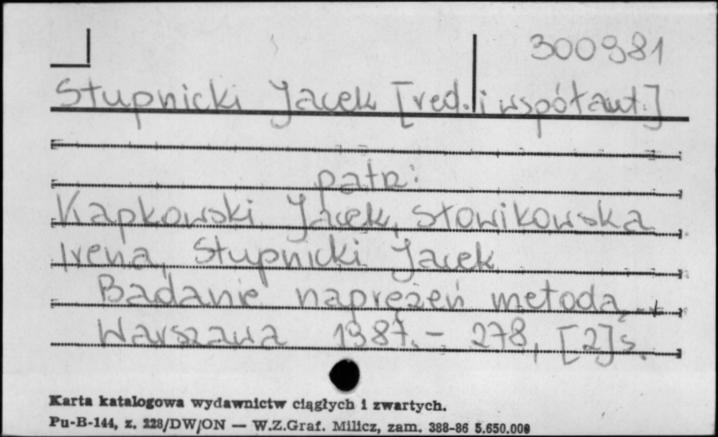 300981
Stupnicki Jacek [red. i współaut.]
patrz:
Kapkowski Jacek, Słowikowska
Irena, Stupnicki Jacek
Badanie naprężeń metodą...
Warszawa 1987. - 278, [2] s.
Karta katalogowa wydawnictw ciągłych i zwartych.
Pu-B-144, z. 228/DW/ON — W.Z.Graf. Milicz, zam. 388-86 5.650.000